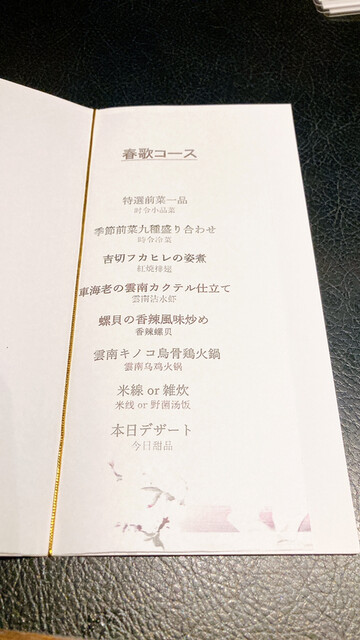 春歌コース
特選前菜一品
时令小品菜
季節前菜九種盛り合わせ
時令冷菜
吉切フカヒレの姿煮
紅焼排翅
車海老の雲南カクテル仕立て
雲南沾水虾
螺貝の香辣風味炒め
香辣螺贝
雲南キノコ烏骨鶏火鍋
雲南乌鸡火锅
米線 or 雑炊
米线 or 野菌汤饭
本日デザート
今日甜品